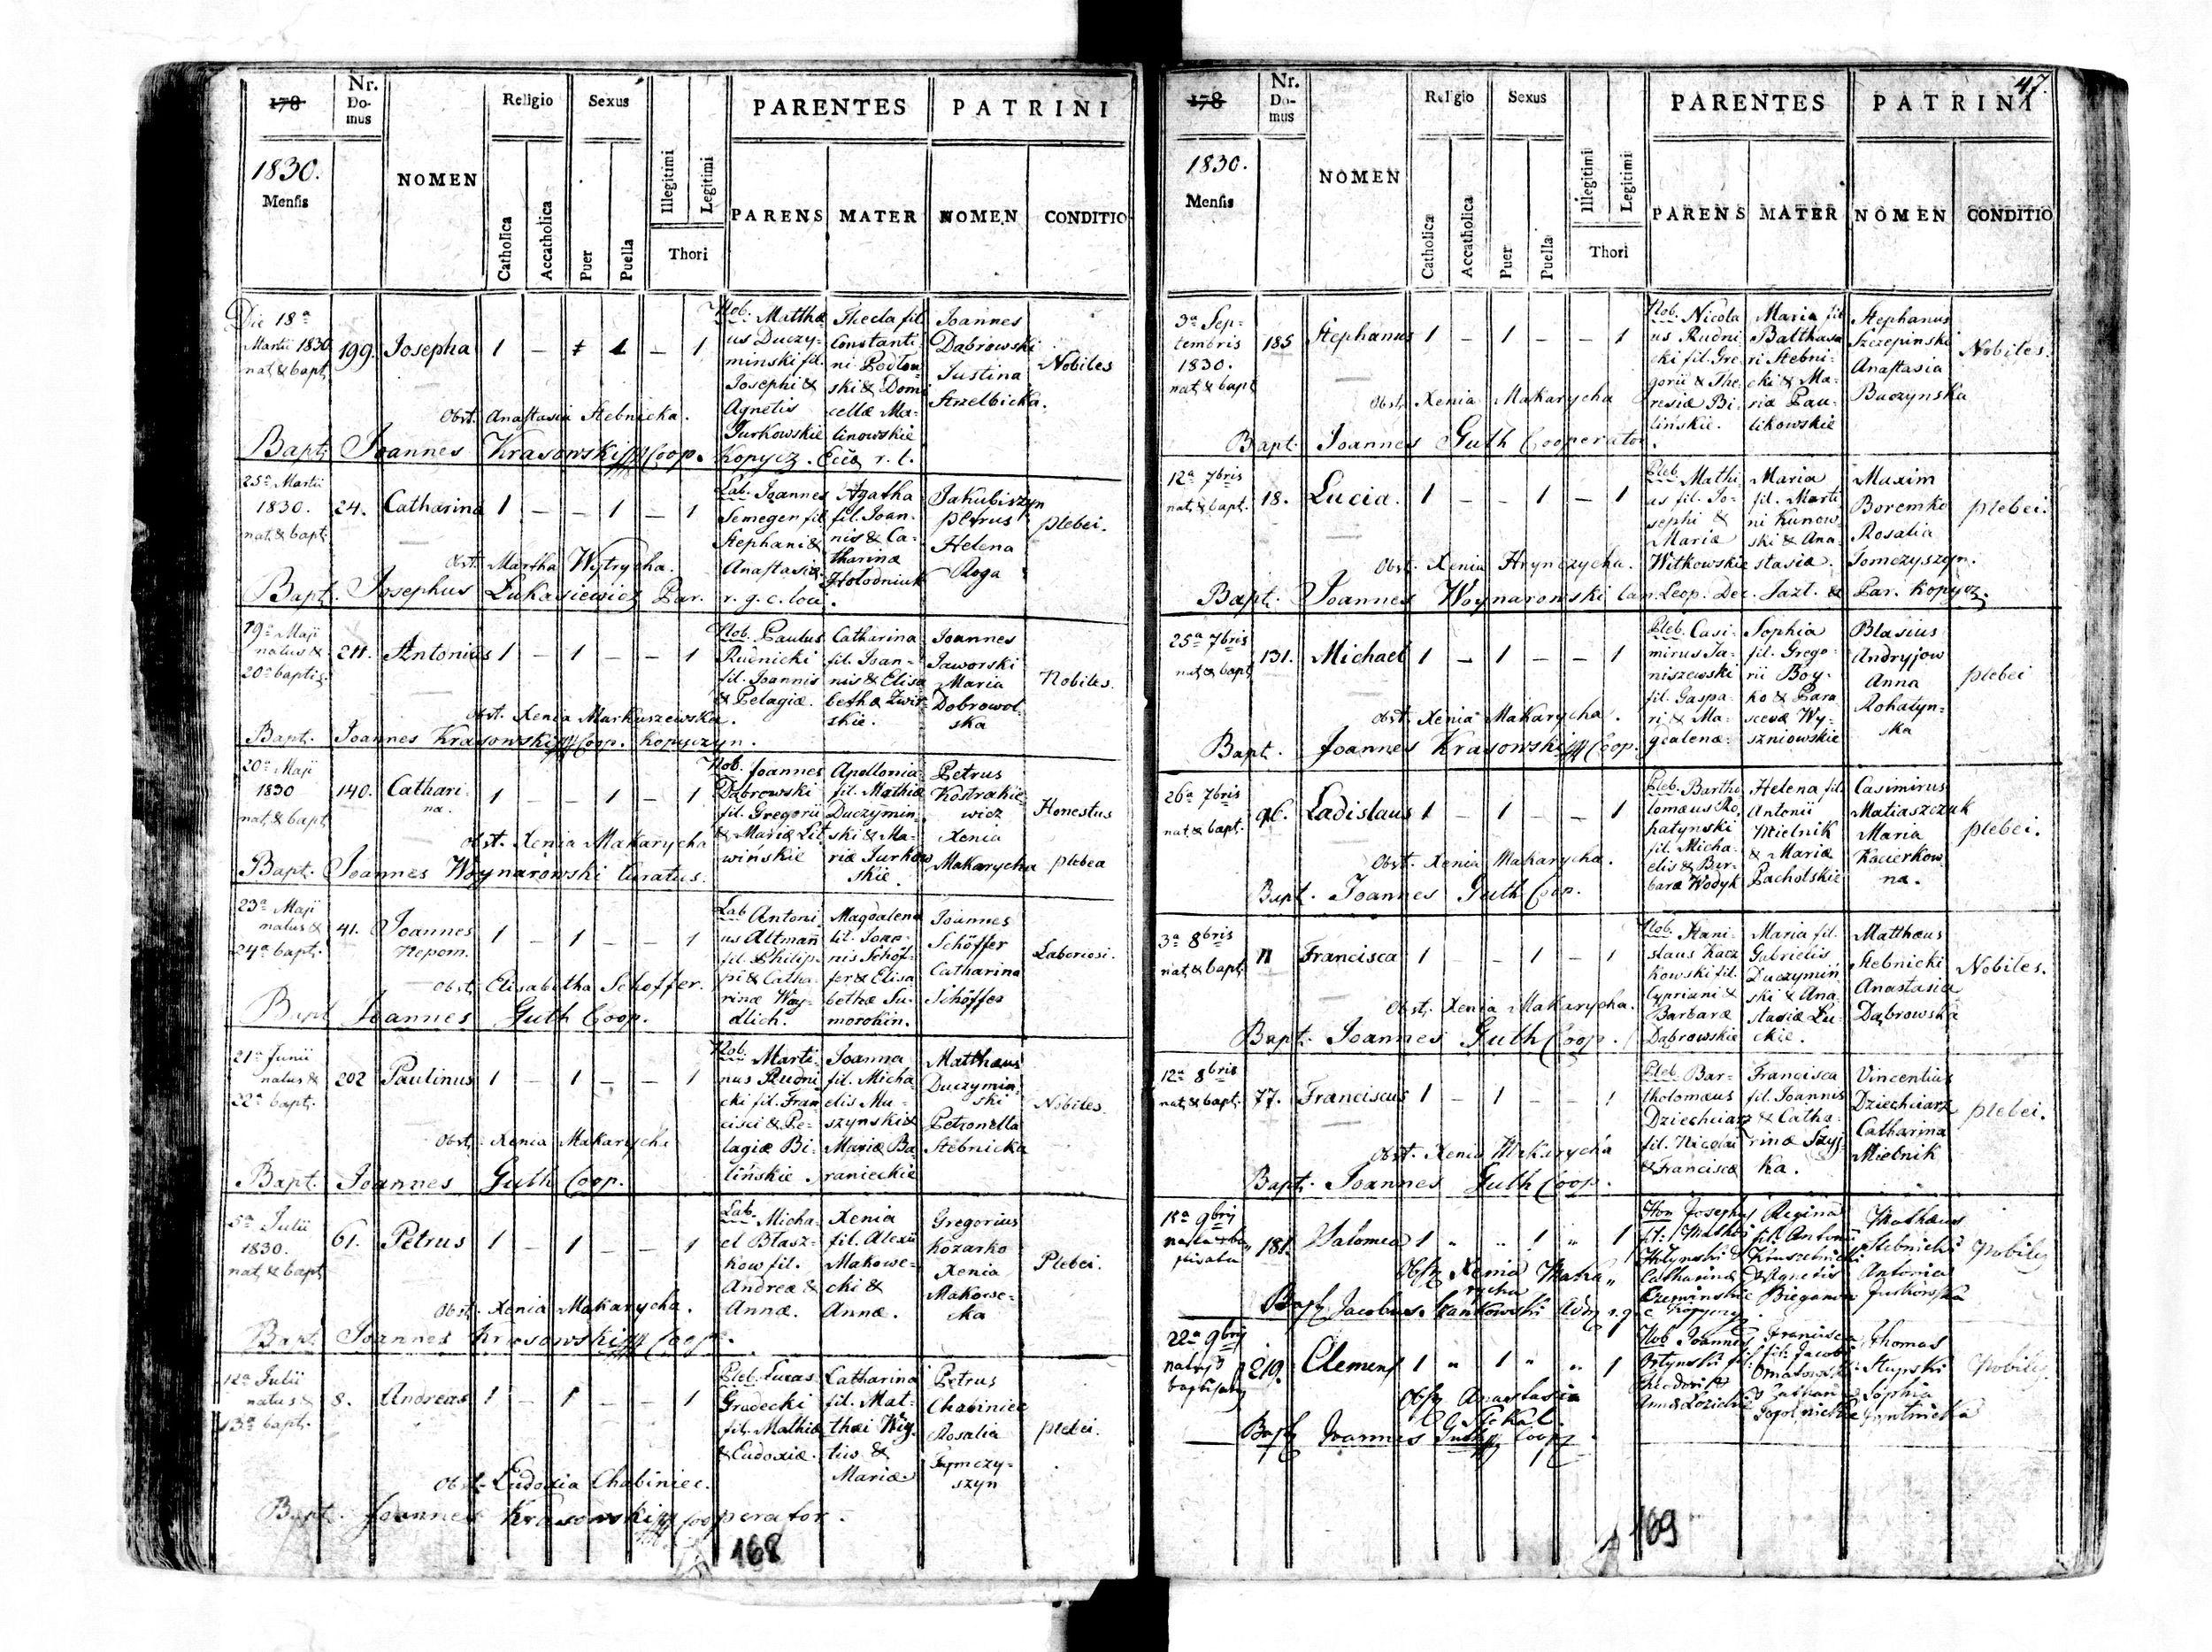 178
Nr. Domus
NOMEN
Religio
Sexus
Illegitimi
Legitimi
PARENTES
PATRINI
1830.
Mensis
Catholica
Accatholica
Puer
Puella
Thori
PARENS
MATER
NOMEN
CONDITIO
Die 18a
Martii 1830
nat. & bapt.
199.
Josepha
1 – 1 – 1
Nob. Matthæ-
us Duczy-
minski fil.
Josephi &
Agnetis
Jurkowskie
Thecla fil.
Constanti-
ni Podlou-
ski & Domi
cellæ Ma-
linowskie
Joannes
Dąbrowski
Justina
Strzelbicka.
Nobiles
Obst. Anastasia Stebnicka.
Bapt. Joannes Krasowski Coop. Kopycz. Ecclæ r. l.
25a Martii
1830.
nat. & bapt.
24.
Catharina
1 – – 1 – 1
Lab. Joannes
Semegen fil.
Stephani &
Anastasiæ
Agatha
fil. Joan-
nis & Ca-
tharinæ
Hołodniuk
Jakubiszyn
Petrus
Helena
Roga
plebei.
Obst. Martha Wytrycha.
Bapt. Josephus Lukasiewicz Par. r. g. c. loci.
19a Maji
natus &
20a baptis.
211.
Antonius
1 – 1 – – 1
Nob. Paulus
Rudnicki
fil. Joannis
& Pelagiæ.
Catharina
fil. Joan-
nis & Elisa
bethæ Zwir-
skie.
Joannes
Jaworski
Maria
Dobrowol-
ska
Nobiles.
Obst. Xenia Markuszewska.
Bapt. Joannes Krasowski Coop. Kopyczyn.
20a Maji
1830
nat. & bapt.
140.
Cathari-
na.
1 – 1 – 1
Nob. Joannes
Dąbrowski
fil. Gregorii
& Mariæ Lit-
wińskie
Apollonia
fil. Mathiæ
Duczymin-
ski & Ma-
riæ Jurkow
skie.
Petrus
Kostrakie-
wicz
Xenia
Makarycha
Honestus
plebea
Obst. Xenia Makarycha
Bapt. Joannes Woynarowski Curatus.
23a Maji
natus &
24a bapt.
41.
Joannes
Nepom.
1 – 1 – – 1
Lab. Antoni-
us Altmañ
fil. Philip-
pi & Catha-
rinæ Way-
dlich.
Magdalena
fil. Joan-
nis Schöf-
fer & Elisa
bethæ Su-
morokin.
Joannes
Schöffer
Catharina
Schöffer
Laboriosi.
Obst. Elisabetha Schoffer.
Bapt. Joannes Guth Coop.
21a Junii
natus &
22a bapt.
202
Paulinus
1 – 1 – – 1
Nob. Marti-
nus Rudni
cki fil. Fran
cisci & Pe-
lagiæ Bi-
lińskie
Joanna
fil. Micha-
elis Mu-
szynski &
Mariæ Ba
ranieckie
Matthæus
Duczymin-
ski
Petronella
Stebnicka
Nobiles.
Obst. Xenia Makarycha
Bapt. Joannes Guth Coop.
5a Julii
1830.
nat. & bapt.
61.
Petrus
1 – 1 – – 1
Lab. Micha-
el Błasz-
kow fil.
Andreæ &
Annæ.
Xenia
fil. Alexii
Makowe-
cki &
Annæ.
Gregorius
Kozarko
Xenia
Makowe-
cka
Plebei.
Obst. Xenia Makarycha.
Bapt. Joannes Krasowski Coop.
12a Julii
natus &
13a bapt.
8.
Andreas
1 – 1 – – 1
Pleb. Lucas
Gradecki
fil. Mathiæ
& Eudoxiæ.
Catharina
fil. Mat-
thæi Wig-
tus &
Mariæ
Petrus
Chabiniec
Rosalia
Tymczy-
szyn
plebei.
Obst. Eudoxia Chabiniec.
Bapt. Joannes Krasowski Cooperator.
168
178
47.
Nr. Domus
NOMEN
Religio
Sexus
Illegitimi
Legitimi
PARENTES
PATRINI
1830.
Mensis
Catholica
Accatholica
Puer
Puella
Thori
PARENS
MATER
NOMEN
CONDITIO
3a Sep-
tembris
1830.
nat. & bapt.
185
Stephanus
1 – 1 – – 1
Nob. Nicola
us Rudni
cki fil. Gre-
gorii & The-
resiæ Bi-
lińskie.
Maria fil.
Balthasa
ri Stebni-
cki & Ma-
riæ Pau-
likowskie
Stephanus
Szczepinski
Anastasia
Buczynska
Nobiles.
Obst. Xenia Makarycha
Bapt. Joannes Guth Cooperator.
12a 7bris
nat. & bapt.
18.
Lucia.
1 – – 1 – 1
Pleb. Mathi-
us fil. Jo-
sephi &
Mariæ
Witkowskie
Maria
fil. Marti
ni Kunow-
ski & Ana-
stasiæ.
Maxim
Boremko
Rosalia
Tomczyszyn.
plebei.
Obst. Xenia Hrynczycha.
Bapt. Joannes Woynarowski Can. Leop. Dec. Jazt. & Par. Kopycz.
25a 7bris
nat. & bapt.
131.
Michael
1 – 1 – – 1
Pleb. Casi-
mirus Ja-
niszewski
fil. Gaspa-
ri & Ma-
gdalenæ.
Sophia
fil. Grego-
rii Boy-
ko & Para
scevæ Wy-
szniowskie
Blasius
Andryjow
Anna
Rohatyn-
ska
plebei
Obst. Xenia Makarycha.
Bapt. Joannes Krasowski Coop.
26a 7bris
nat. & bapt.
96.
Ladislaus
1 – 1 – – 1
Pleb. Bartho
lomæus Ro-
hatynski
fil. Micha-
elis & Bar-
baræ Wodyk
Helena fil.
Antonii
Mielnik
& Mariæ
Pacholskie
Casimirus
Matiaszczuk
Maria
Kacierkow-
na.
plebei.
Obst. Xenia Makarycha.
Bapt. Joannes Guth Coop.
3a 8bris
nat. & bapt.
11
Francisca
1 – – 1 – 1
Nob. Stani-
slaus Kacz
kowski fil.
Cypriani &
Barbaræ
Dąbrowskie
Maria fil.
Gabrielis
Duczymiñ
ski & Ana-
stasiæ Lu-
ckie.
Matthæus
Stebnicki
Anastasia
Dąbrowska
Nobiles.
Obst. Xenia Makarycha.
Bapt. Joannes Guth Coop.
12a 8bris
nat. & bapt.
77.
Franciscus
1 – 1 – – 1
Pleb. Bar-
tholomæus
Dziechciarz
fil. Nicolai
& Franciscæ
Francisca
fil. Joannis
& Catha-
rinæ Szyj-
ka.
Vincentius
Dziechciarz
Catharina
Mielnik
plebei.
Obst. Xenia Makarycha
Bapt. Joannes Guth Coop.
18a 9bris
181.
Salomea
1 " " 1 " 1
Hon Josephus
fil. Mathei
Catharina
Regina
fil. Antonii
& Agnetis
Mathæus
Stebnicki
Antonia
Jurkowska
Nobiles
Obstz Xenia Maka-
rycha
Bapt. Jacobus
22a 9bris
natus &
219.
Clemens
1 " 1 " " 1
Nob Joannes
Francisca
fil. Jacobi
Thomas
Stupski
Sophia
Nobiles.
Obstz Anastasia
Bapt. Joannes Guth Coop.
169